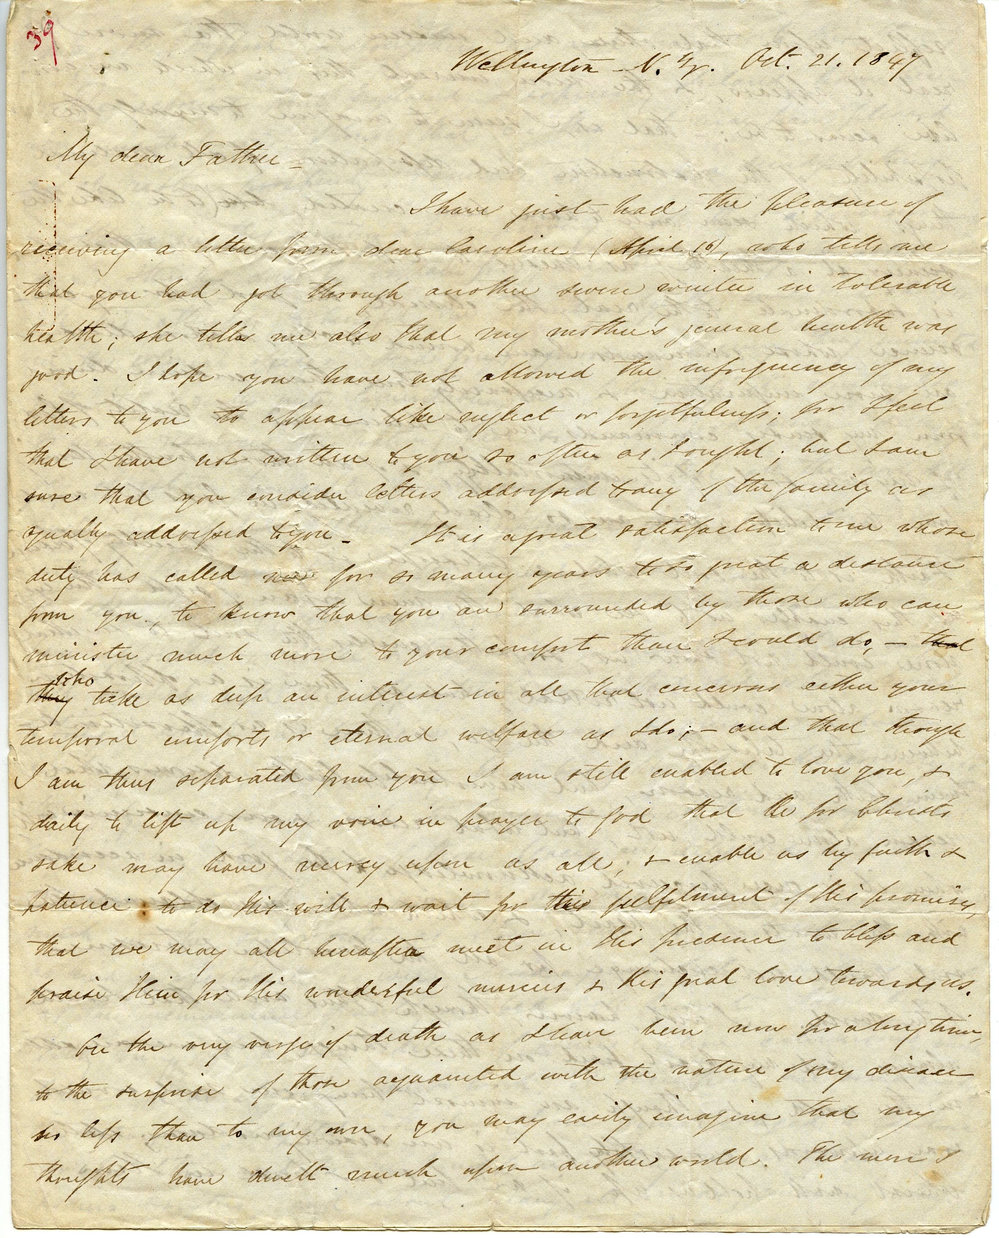 39
Wellington - N. Zr. Oct. 21. 1847
My dear Father -
I have just had the pleasure of
receiving a letter from dear Caroline (April 10), who tells me
that you had got through another severe winter in tolerable
health; she tells me also that my mother's general health was
good. I hope you have not allowed the infrequency of my
letters to you to appear like neglect or forgetfulness; for I feel
that I have not written to you so often as I ought; but I am
sure that you consider letters addressed to any of the family as
equally addressed to you - It is a great satisfaction to me whose
duty has called me for so many years to so great a distance
from you, to know that you are surrounded by those who can
minister much more to your comfort than I could do, - that
they who take as deep an interest in all that concerns either your
temporal comforts or eternal welfare as I do; - and that though
I am thus separated from you I am still enabled to love you, &
daily to lift up my voice in prayer to God that He for Christs
sake may have mercy upon us all, & enable us by faith &
patience to do His will & wait for the fulfilment of His promises,
that we may all hereafter meet in His presence to bless and
praise Him for His wonderful mercies & His great love towards us.
On the very verge of death as I have been now for a long time,
to the surprise of those acquainted with the nature of my disease
no less than to my own, you may easily imagine that my
thoughts have dwelt much upon another world. The more I